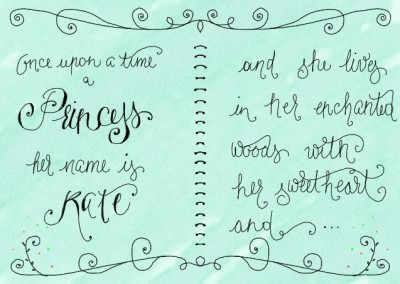 Once upon a time
a
Princess
her name is
Kate
and she lives
in her enchanted
woods with
her sweetheart
and ...